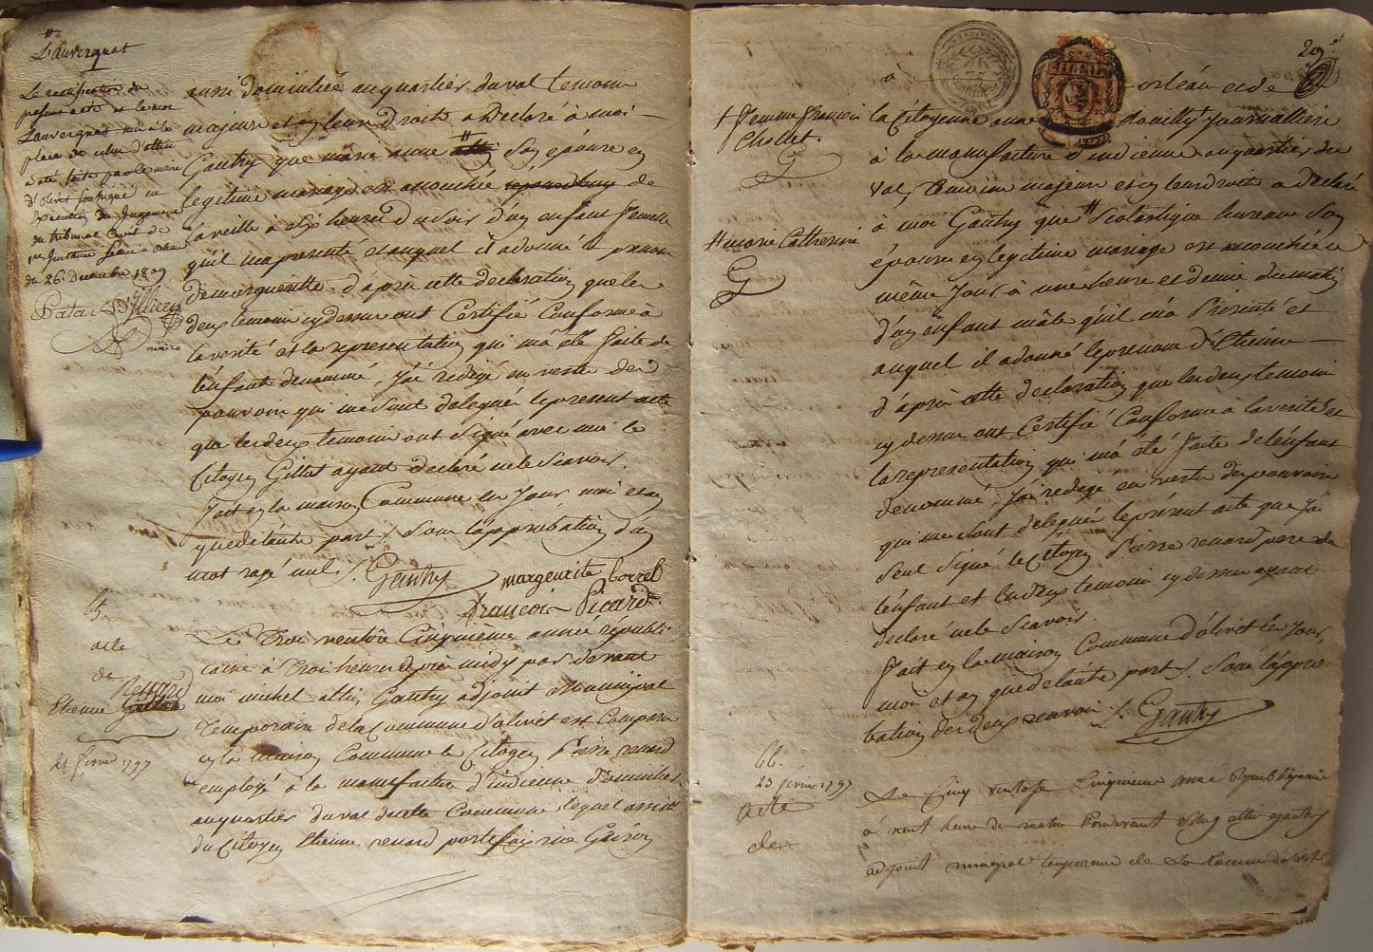 Lauvergnat
La rectification du
présent acte sur le nom
Lauvergnat mis à la
place de celui d'
a été faite par le maire
d'Olivet soussigné en
exécution du jugement
du tribunal civil de
1re Instance séant à
du 26 décembre 1809
aussi domicilié au quartier du val temoins
majeurs et en leurs droits a déclaré à moi
Gauthy que marie anne son épouse en
legitime mariage est accouchée de
la veille à dix heures du soir d'un enfant femelle
qu'il m'a presenté et auquel il a donné le prenom
de marguerithe. d'après cette declaration que les
deux temoins cy dessus ont Certifié Conforme à
la verité et la representation qui m'a été faite de
l'enfant denommé, J'ai redigé en vertu des
pouvoirs qui me sont delegués le present acte
que les deux temoins ont signé avec moi le
Citoyen Gillet ayant declaré ne le scavoir.
fait en la maison Commune les Jour, mois et an
que de l'autre part. Sous l'approbation d'un
mot rayé nul. Gauthy marguerite borel
françois Picard
65.
acte
de
Renard
Etienne
21 février 1797
Le Trois ventôse Cinquieme année républi
caine à trois heures après midy par devant
moi michel Gauthy adjoint Municipal
Temporaire de la Commune d'olivet est Comparu
en la maison Commune le Citoyen Pierre renard
employé à la manufacture d'indienne Domicilié
au quartier du val de cette Commune lequel assisté
du Citoyen Etienne renard portefaix
29
orléans et de
+ femme françois
Chollet.
la Citoyenne anne + Journalliere
à la manufacture d'indienne au quartier du
val, temoins majeurs et en leurs droits a déclaré
# marie Catherine
à moi Gauthy que # Scolastique bureau son
épouse en legitime mariage est accouchée ce
même Jour à une heure et demie du matin
d'un enfant mâle qu'il m'a Presenté et
auquel il a donné le prenom d'Etienne
d'après cette declaration que les deux temoins
cy dessus ont Certifié Conforme à la verité et
la representation qui m'a été faite de l'enfant
denommé, J'ai redigé en vertu des pouvoirs
qui me sont delegués le présent acte que J'ai
seul signé le Citoyen Pierre renard pere de
l'enfant et les deux temoins cy dessus ayant
declaré ne le Scavoir.
fait en la maison Commune d'olivet les Jour,
mois et an que de l'autre part. Sous l'appro
bation de deux renvois. Gauthy
66.
23 février 1797
acte
de
Le Cinq ventose Cinquieme année Republiquaine
à neuf heure du matin Pardevant gauthy
adjoint municipal temporaire de la Commune d'olivet